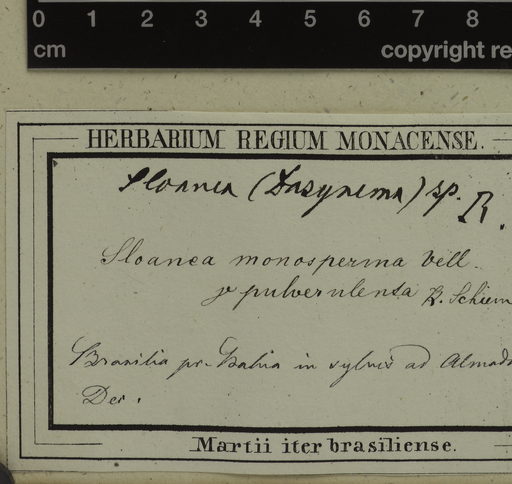 0 1 2 3 4 5 6 7 8
cm copyright re
HERBARIUM REGIUM MONACENSE.
Sloanea (Dasynema) sp.
R.
Sloanea monosperma Vell.
γ pulverulenta K. Schum
Brasilia pr. Bahia in sylvis ad Almada
Dec.
Martii iter brasiliense.